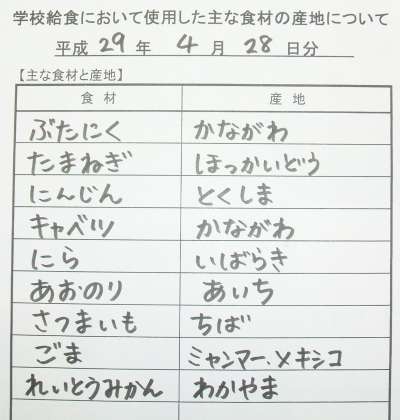 学校給食において使用した主な食材の産地について
平成 29 年 4 月 28 日分
【主な食材と産地】
食 材 産 地
ぶたにく かながわ
たまねぎ ほっかいどう
にんじん とくしま
キャベツ かながわ
にら いばらき
あおのり あいち
さつまいも ちば
ごま ミャンマー、メキシコ
れいとうみかん わかやま